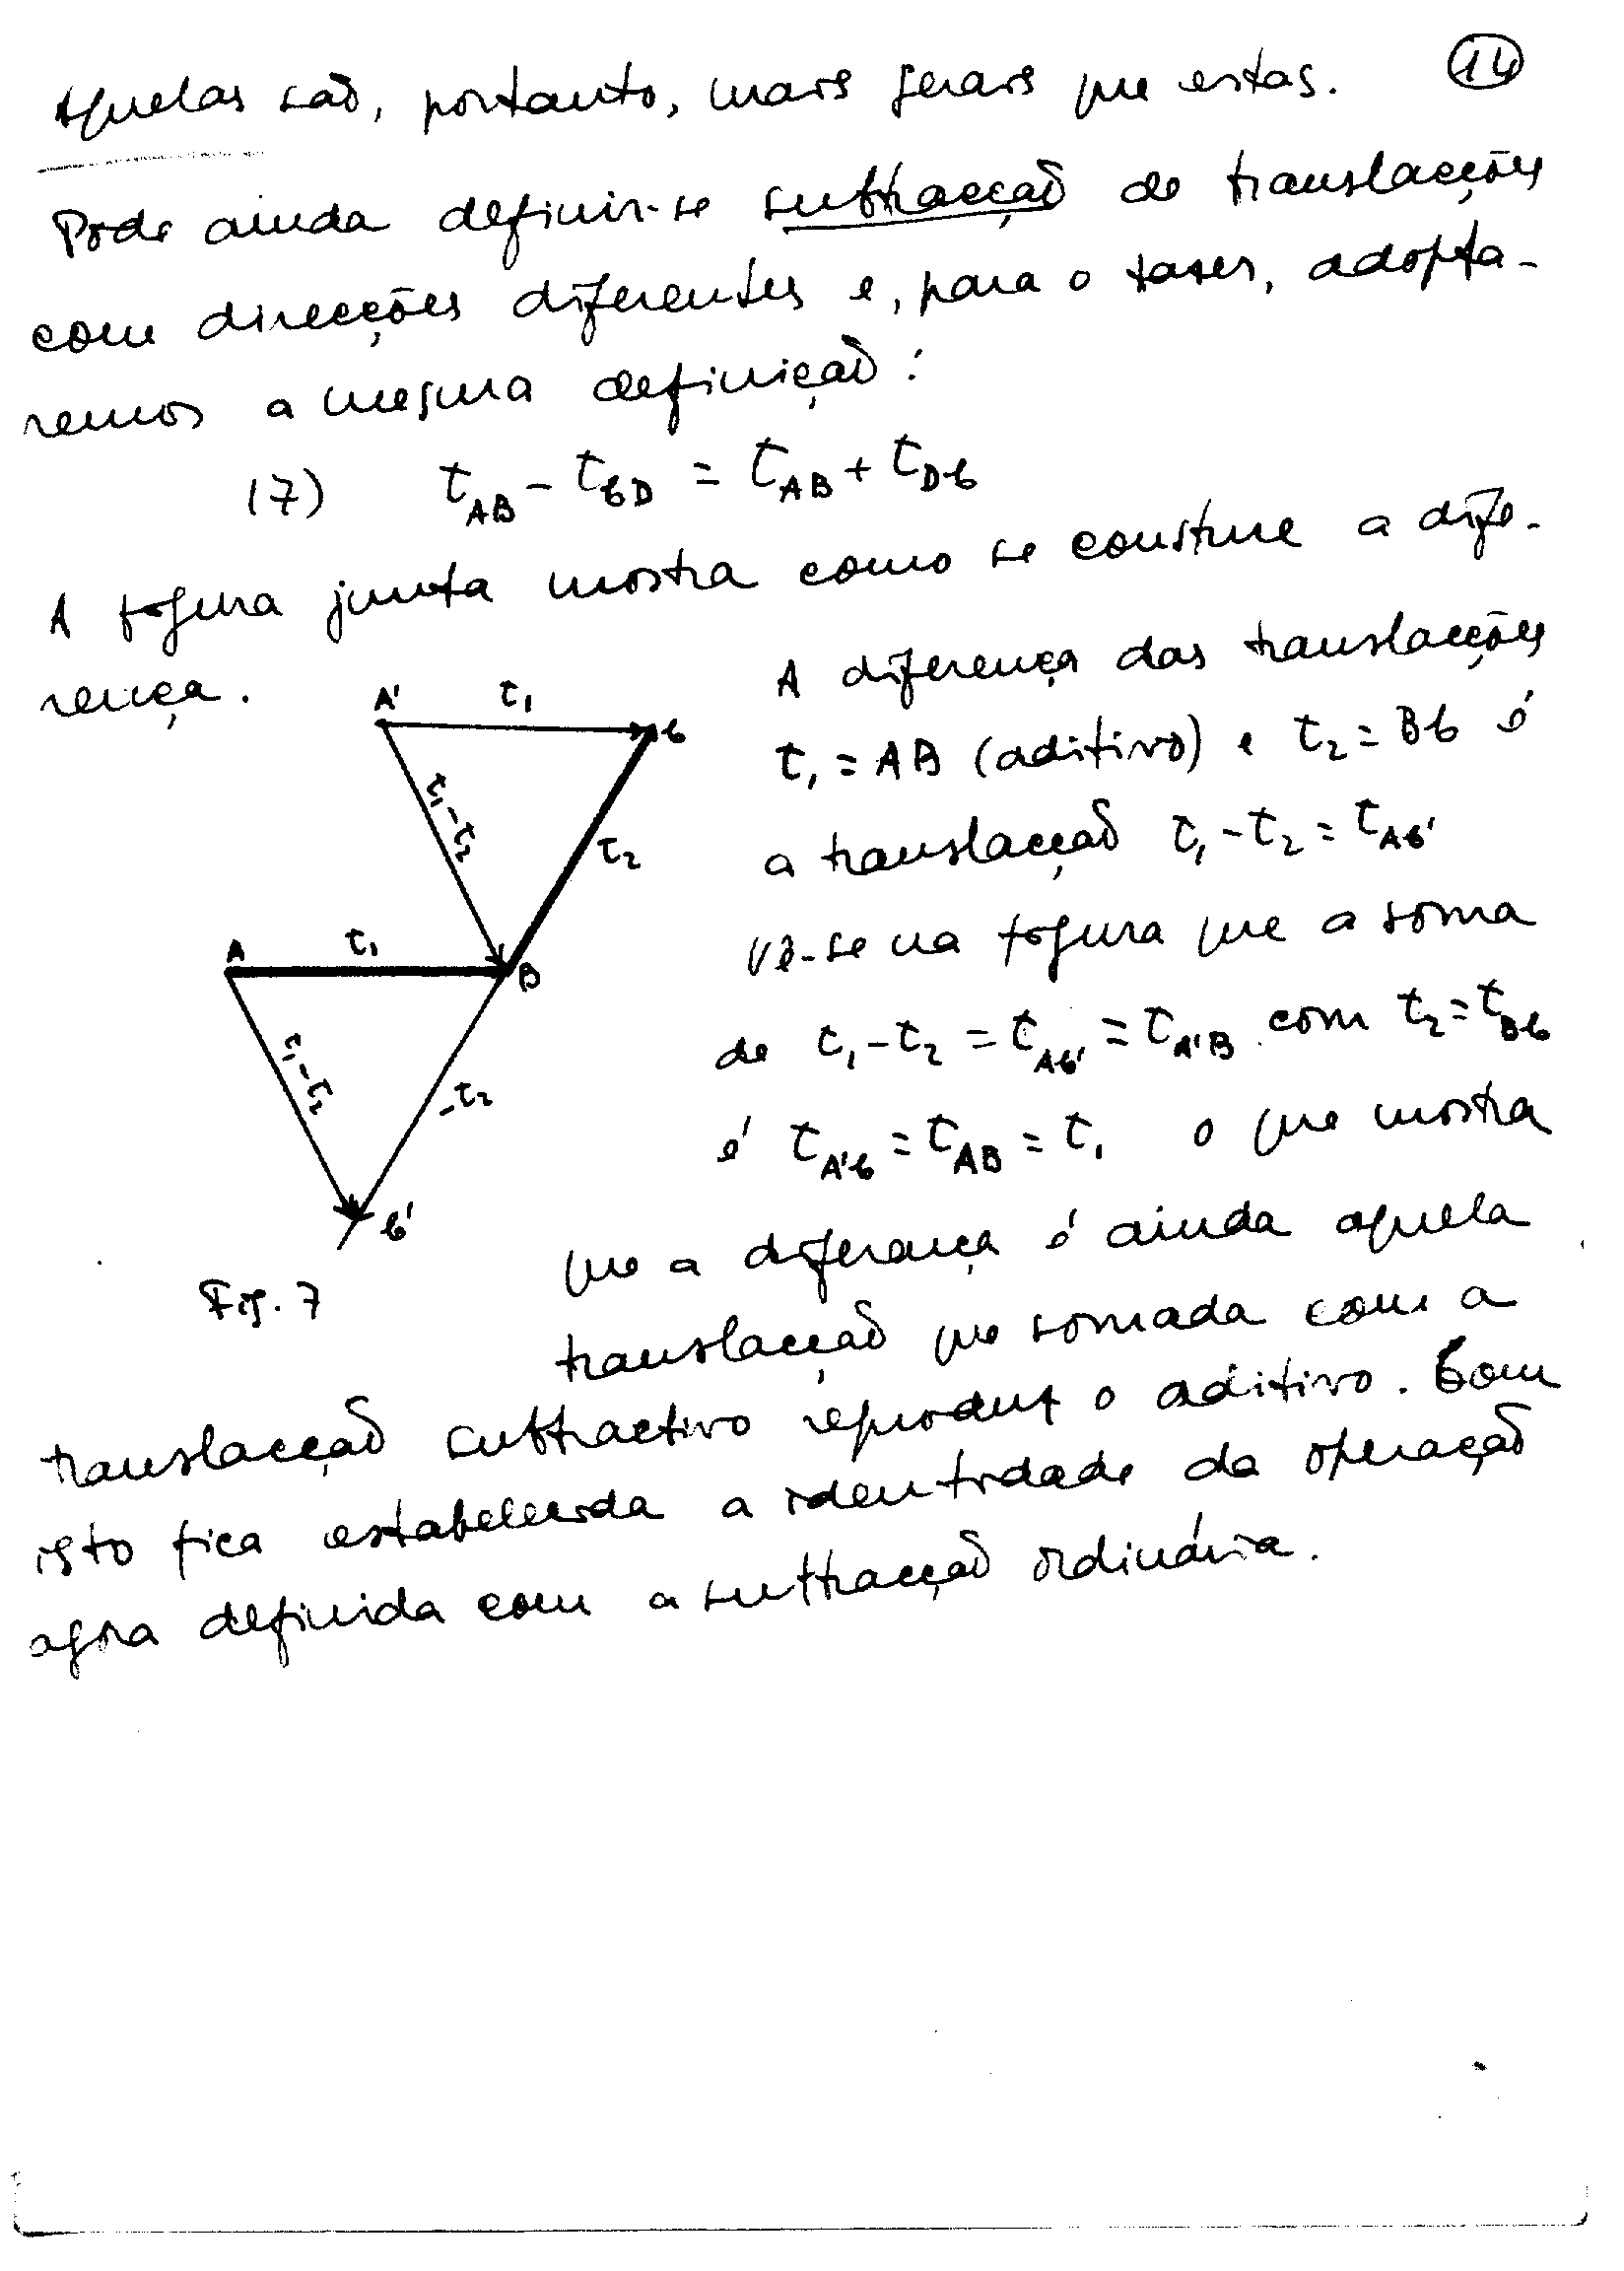 Aquelas são, portanto, mais gerais que estas. 14
Pode ainda definir-se subtracção de translacções
com direcções diferentes e, para o fazer, adopta-
remos a mesma definição:
(7) t_AB - t_CD = t_AB + t_DC
A figura junta mostra como se construe a dife-
rença.
A' t₁ C
t₁-t₂
t₂
A t₁ B
t₁-t₂
-t₂
C'
Fig. 7
A diferença das translacções
t₁ = AB (aditivo) e t₂ = BC é
a translacção t₁-t₂ = t_AC'
Vê-se na figura que a soma
de t₁-t₂ = t_AC' = t_A'B com t₂ = t_BC
é t_A'C = t_AB = t₁ o que mostra
que a diferença é ainda aquela
translacção que somada com a
translacção subtractivo reproduz o aditivo. Com
isto fica estabelecida a identidade da operação
agora definida com a subtracção ordinária.